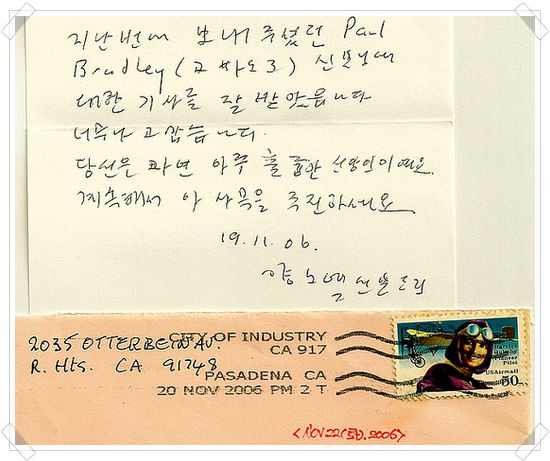 지난번에 보내주셨던 Paul
Bradley (고 바오로) 신부님에
대한 기사를 잘 받았읍니다
너무나 고맙습니다.
당신은 과연 아주 훌륭한 신앙인이예요.
계속해서 이 사목을 추진하세요
19.11.06.
양 노엘 신부
2035 OTTERBEIN AV
R. Hts. CA 91748
CITY OF INDUSTRY
CA 917
PASADENA CA
20 NOV 2006 PM 2 T
Harriet
Quimby
Pioneer
Pilot
USAirmail
50
<NOV 22 2006>